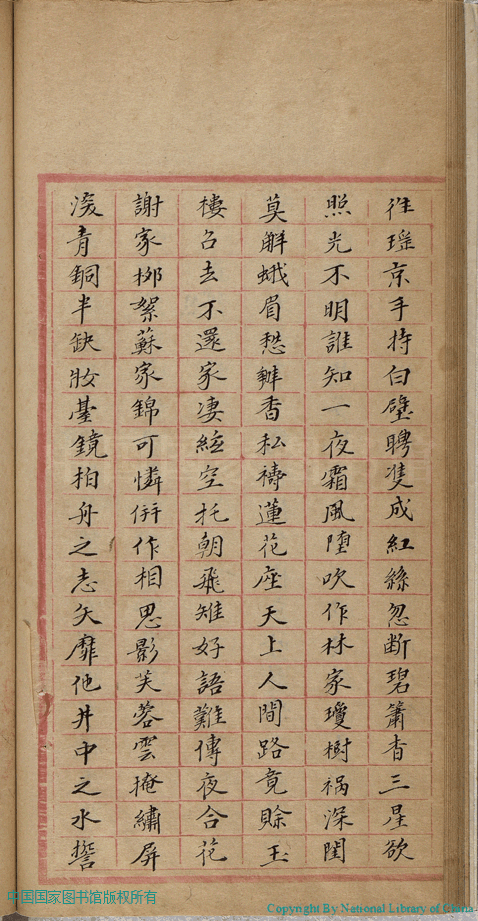 往瑶京手持白璧聘隻成紅絲忽断碧簫杳三星欲
照光不明誰知一夜霜風墮吹作林家瓊樹禍深閨
莫解蛾眉愁辦香私禱蓮花座天上人間路竟賒玉
樓召去不還家凄絃空托朝飛雉好語難傳夜合花
謝家柳絮蘇家錦可憐併作相思影芙蓉雲掩繡屏
涙青銅半缺妝臺鏡柏舟之志矢靡他井中之水誓
中国国家图书馆版权所有
Copyright By National Library of China